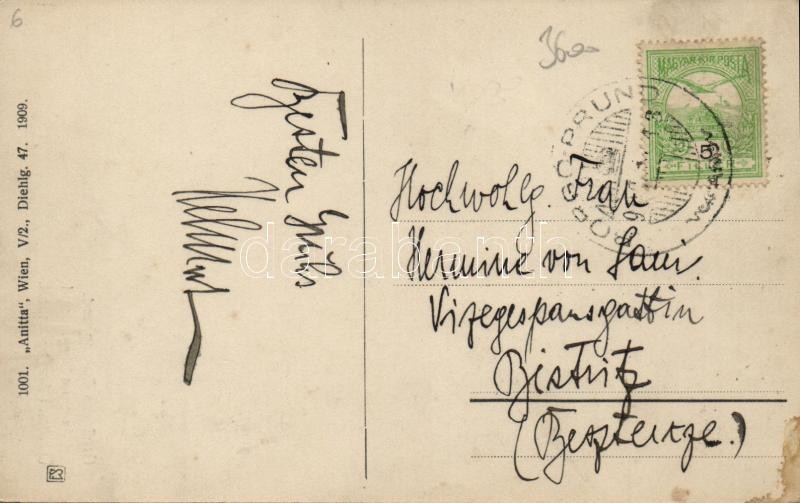 6
36
1001. „Anitta", Wien, V/2., Diehlg. 47. 1909.
Besten Gruß
Helmut
MAGYAR KIR. POSTA
5
BORGÓ-PRUND
Hochwohlg. Frau
Hermine von
Vizegespansgattin
Bistritz
(Besztercze.)
darabanth